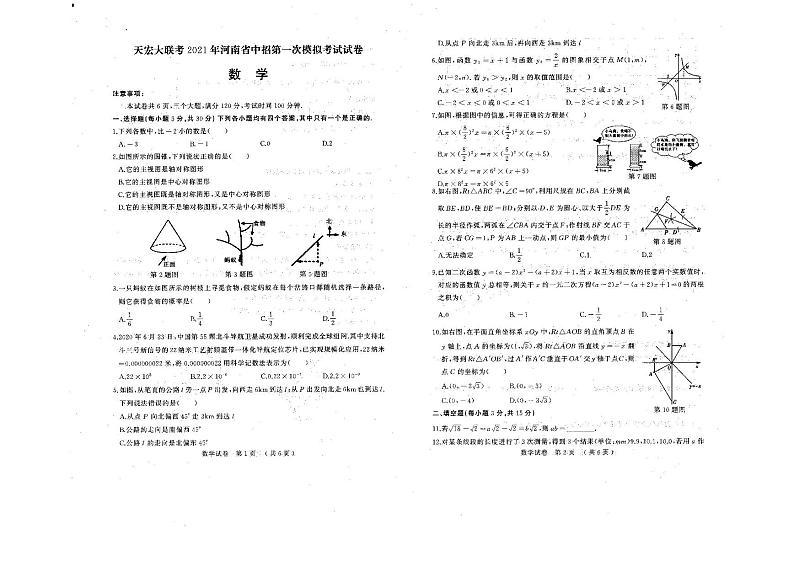 天宏大联考 2021 年河南省中招第一次模拟考试试卷
数 学
注意事项:
本试卷共 6 页,三个大题,满分 120 分,考试时间 100 分钟.
一、选择题(每小题 3 分,共 30 分) 下列各小题均有四个答案,其中只有一个是正确的.
1.下列各数中,比-2 小的数是( )
A.-3 B.-1 C.0 D.2
2.如图所示的圆锥,下列说法正确的是( )
A.它的主视图是轴对称图形
B.它的主视图是中心对称图形
C.它的主视图既是轴对称图形,又是中心对称图形
D.它的主视图既不是轴对称图形,又不是中心对称图形
食物
北
东
蚂蚁
正面
第 2 题图 第 3 题图 第 5 题图
3.一只蚂蚁在如图所示的树枝上寻觅食物,假定蚂蚁在每个岔路口都随机选择一条路径,
则它获得食物的概率是( )
A.1/6 B.1/4 C.1/3 D.1/2
4.2020 年 6 月 23 日,中国第 55 颗北斗导航卫星成功发射,顺利完成全球组网.其中支持北
斗三号新信号的 22 纳米工艺射频基带一体化导航定位芯片,已实现规模化应用,22 纳米
=0.000000022 米,将 0.000000022 用科学记数法表示为( )
5.如图,从笔直的公路 l 旁一点 P 出发,向西走 6km 到达 l;从 P 出发向北走 6km 也到达 l.
下列说法错误的是( )
A.从点 P 向北偏西 45° 走 3km 到达 l
B.公路 l 的走向是南偏西 45°
C.公路 l 的走向是北偏东 45°
数学试卷 第 1 页 (共 6 页)
D.从点 P 向北走 3km 后,再向西走 3km 到达 l
6.如图,函数 y₁=x+1 与函数 y₂=2/x 的图象相交于点 M(1,m),
N(-2,n).若 y₁>y₂,则 x 的取值范围是( )
A.x<-2 或 0<x<1 B.x<-2 或 x>1
C.-2<x<0 或 0<x<1 D.-2<x<0 或 x>1
第 6 题图
7.如图,根据图中的信息,可得正确的方程是( )
A.π×(8/2)²x=π×(6/2)²×(x-5)
B.π×(8/2)²x=π×(6/2)²×(x+5)
C.π×8²x=π×6²×(x+5)
D.π×8²x=π×6²×5
第 7 题图
8.如右图,Rt△ABC 中,∠C=90°,利用尺规在 BC,BA 上分别截
取 BE,BD,使 BE=BD;分别以 D,E 为圆心,以大于1/2DE 为
长的半径作弧,两弧在∠CBA 内交于点 F;作射线 BF 交 AC 于
点 G,若 CG=1,P 为 AB 上一动点,则 GP 的最小值为( )
A.无法确定 B.1/2 C.1 D.2
第 8 题图
9.已知二次函数 y=(a-2)x²-(a+2)x+1,当 x 取互为相反数的任意两个实数值时,
对应的函数值 y 总相等,则关于 x 的一元二次方程(a-2)x²-(a+2)x+1=0 的两根
之积为( )
A.0 B.-1 C.-1/2 D.-1/4
10.如右图,在平面直角坐标系 xOy 中,Rt△AOB 的直角顶点 B 在
y 轴上,点 A 的坐标为(1,√3),将 Rt△AOB 沿直线 y=-x 翻
折,得到 Rt△A'OB',过 A' 作 A'C 垂直于 OA' 交 y 轴于点 C,则
点 C 的坐标为( )
A.(0,-2√3) B.(0,-3)
C.(0,-4) D.(0,-3√3)
第 10 题图
二、填空题(每小题 3 分,共 15 分)
11.若√18-√2=a√2-√2=b√2,则 ab=______.
12.对某条线段的长度进行了 3 次测量,得到 3 个结果(单位:mm)9.9,10.1,10.0,若用 a 作
数学试卷 第 2 页 (共 6 页)